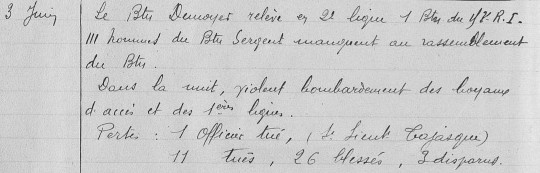 3 Juin Le Btn Demoyer relève en 2e ligne 1 Btn du R.I.
III hommes du Btn Sergent manquent au rassemblement
du Btn.
Dans la nuit, violent bombardement des boyaux
d'accès et des 1ères lignes.
Pertes : 1 Officier tué, (S. Lieut Cajasque)
11 tués, 26 blessés, 3 disparus.